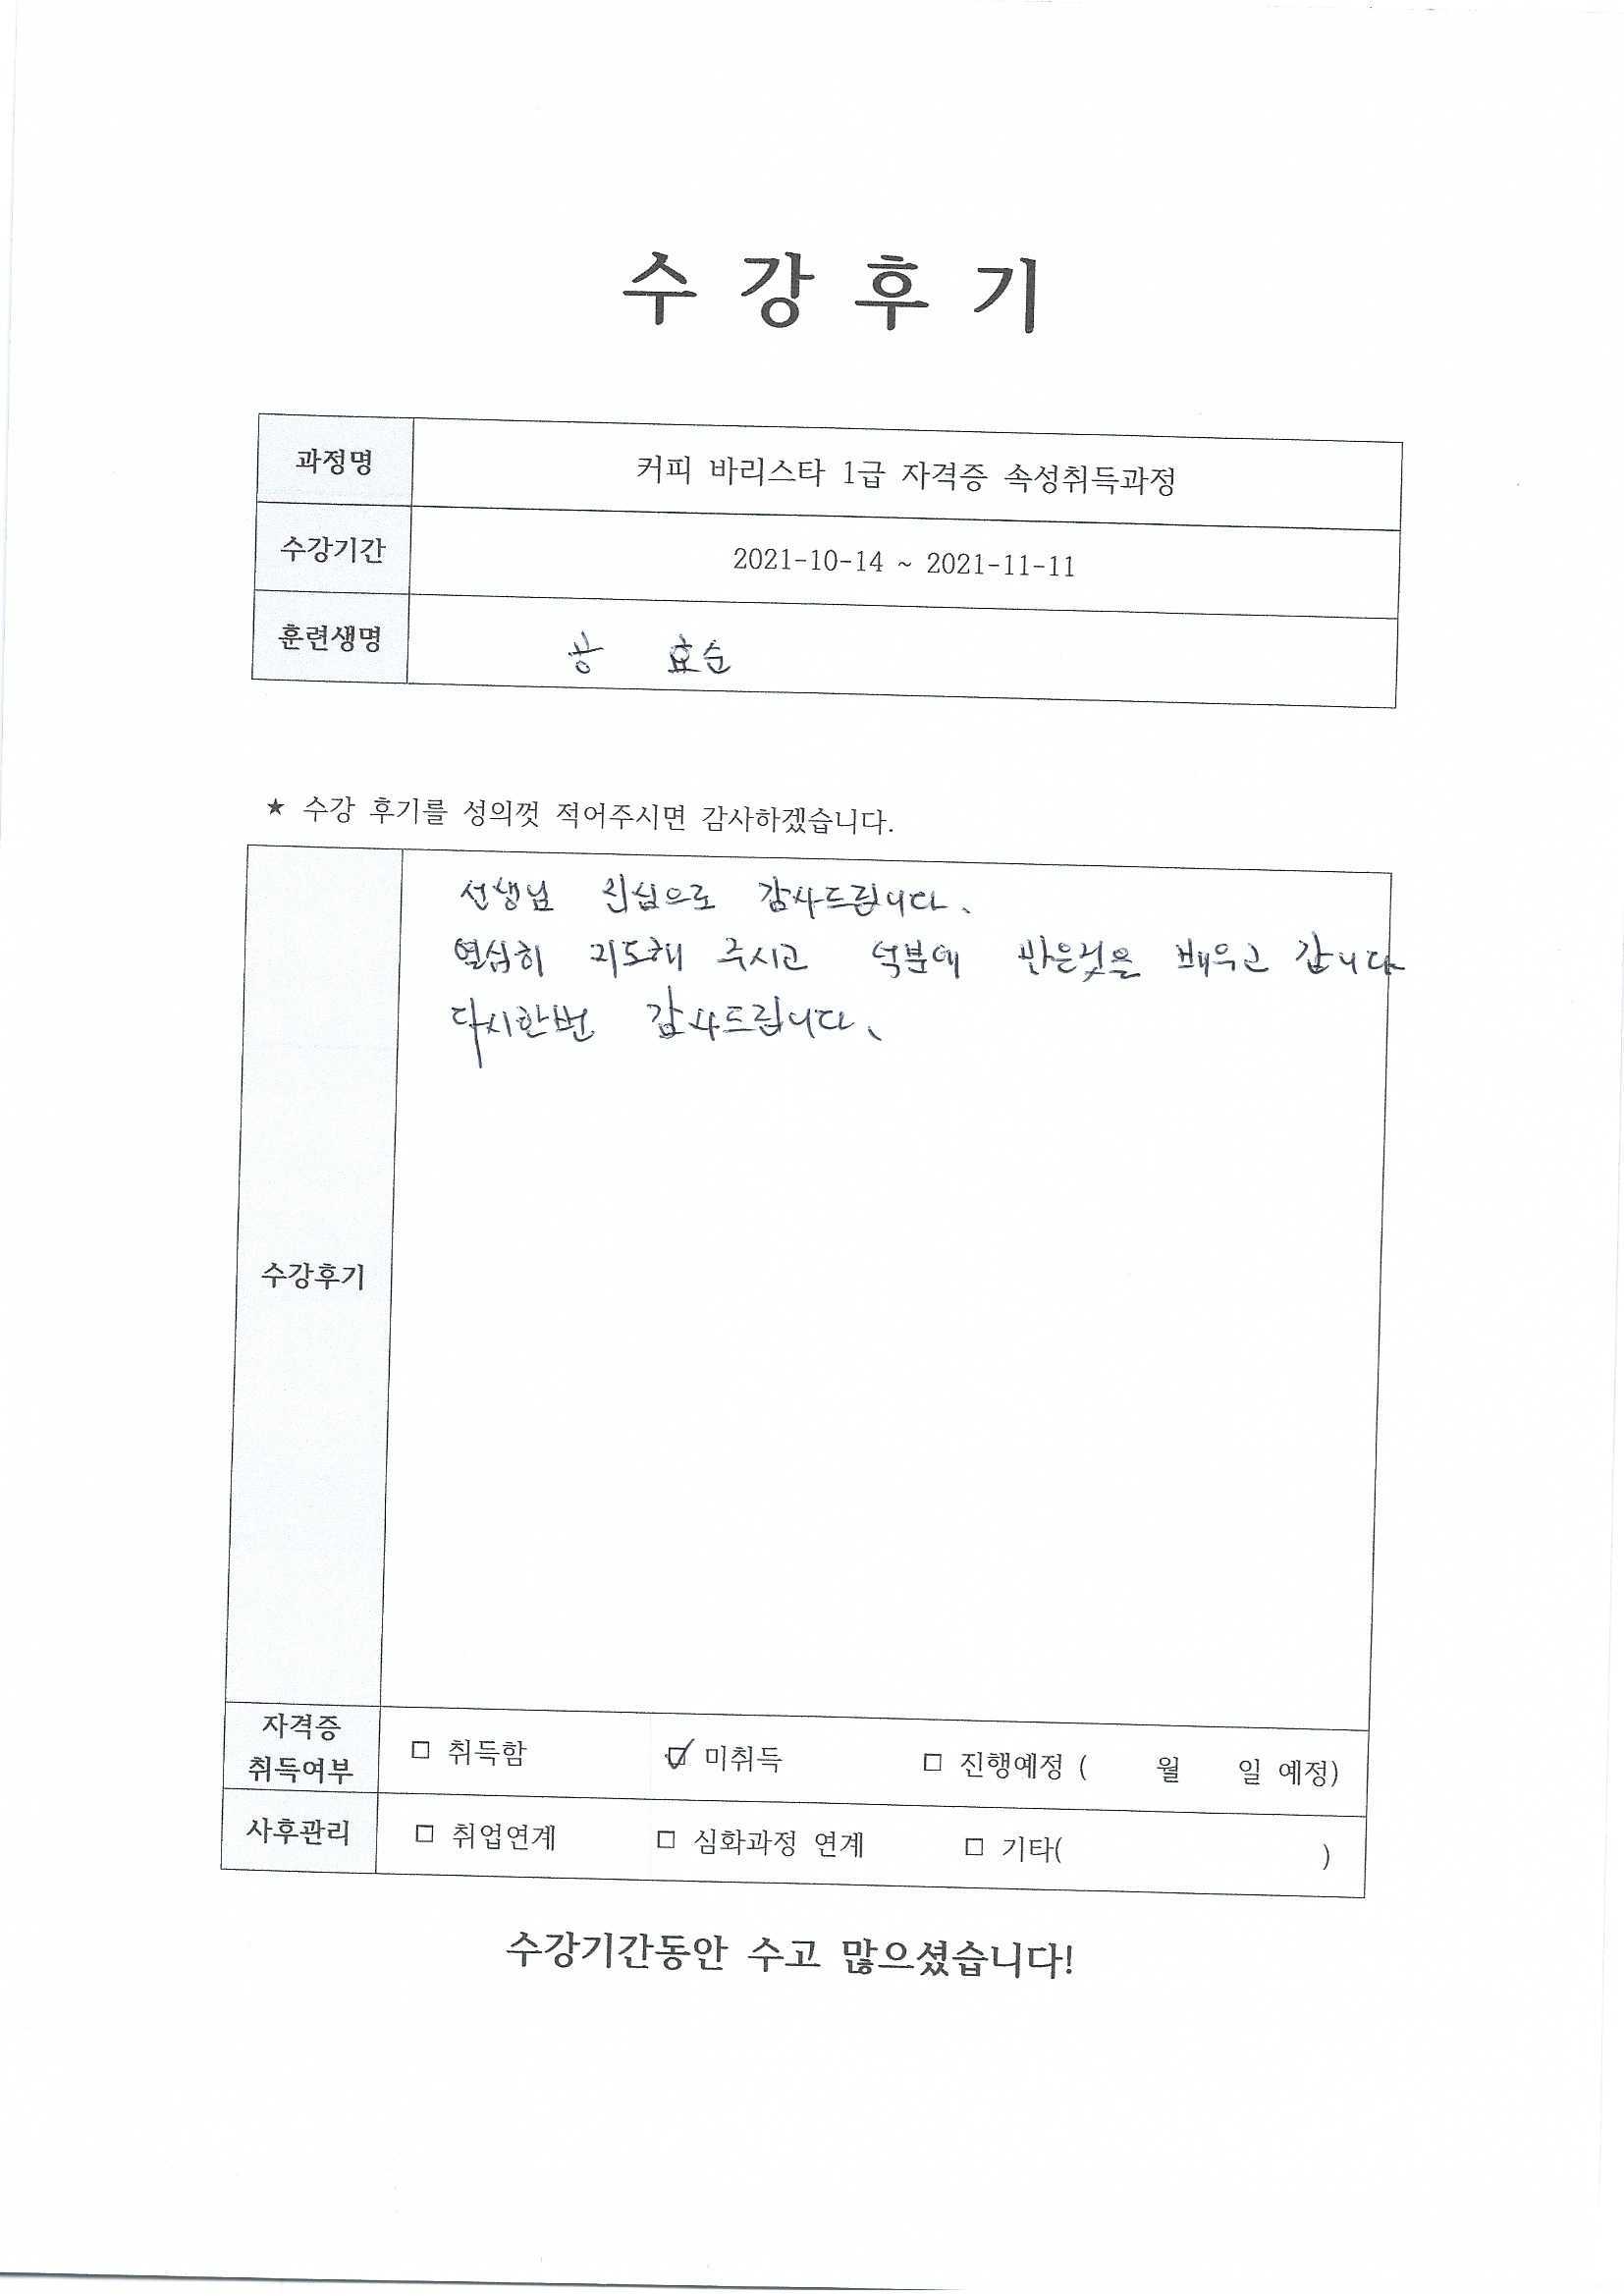 수 강 후 기
과정명 커피 바리스타 1급 자격증 속성취득과정
수강기간 2021-10-14 ~ 2021-11-11
훈련생명 공 효순
★ 수강 후기를 성의껏 적어주시면 감사하겠습니다.
선생님 진심으로 감사드립니다.
열심히 지도해 주시고 덕분에 많은것을 배우고 갑니다
다시한번 감사드립니다.
수강후기
자격증
취득여부
□ 취득함 ☑ 미취득 □ 진행예정 ( 월 일 예정)
사후관리 □ 취업연계 □ 심화과정 연계 □ 기타( )
수강기간동안 수고 많으셨습니다!